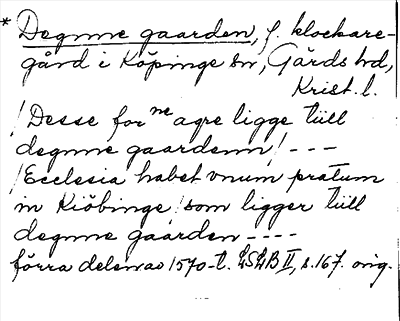 * Degnne gaarden, f. klockare-
gård i Köpinge sn, Gärds hd,
Krist. l.
/Desse for^ne agre ligge tiill
degnne gaardenn/ - - -
/Ecclesia habet vnum pratum
in Kiöbinge/ som ligger tiill
degnne gaarden - - - -
förra delen av 1570-t. LSLB II, s. 167. orig.